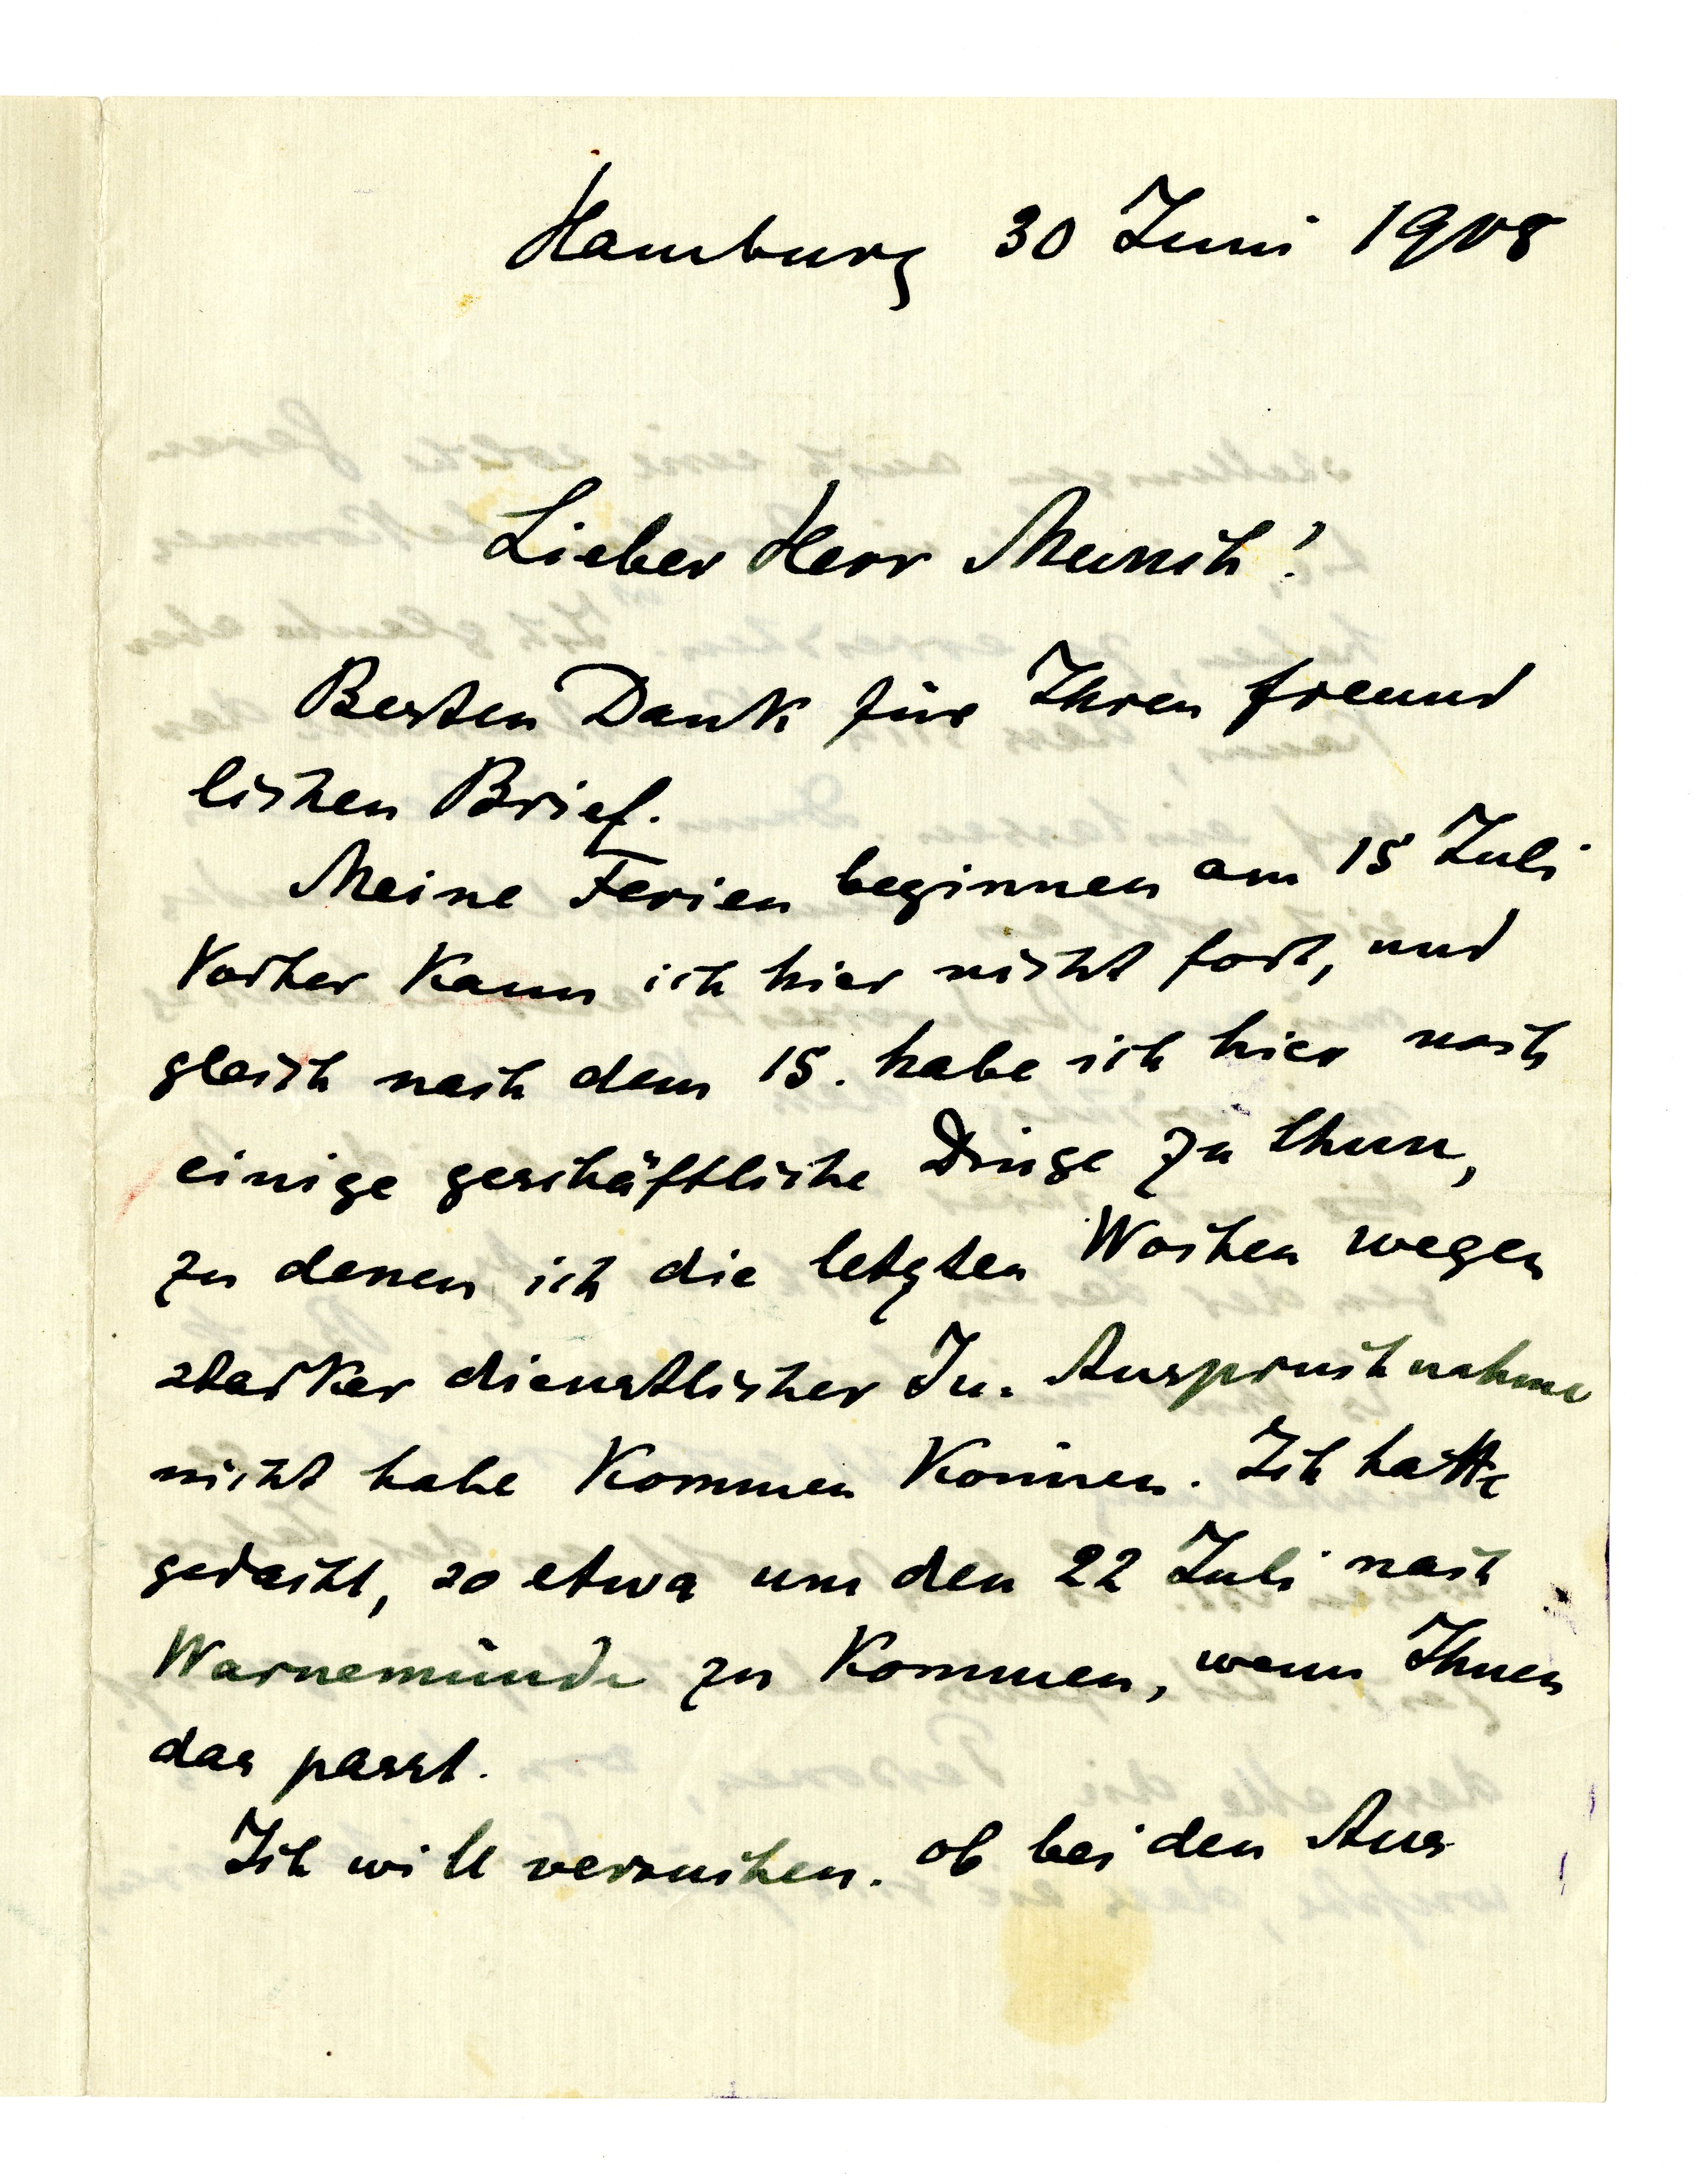 Hamburg 30 Juni 1908
Lieber Herr Munch!
Besten Dank für Ihren freund
lichen Brief.
Meine Ferien beginnen am 15 Juli
Vorher kann ich hier nicht fort, und
gleich nach dem 15. habe ich hier noch
einige geschäftliche Dinge zu thun,
zu denen ich die letzten Wochen wegen
starker dienstlicher In-Anspruchnahme
nicht habe kommen können. Ich hatte
gedacht, so etwa um den 22 Juli nach
Warnemünde zu kommen, wenn Ihnen
das passt.
Ich will versuchen. ob bei den Aus